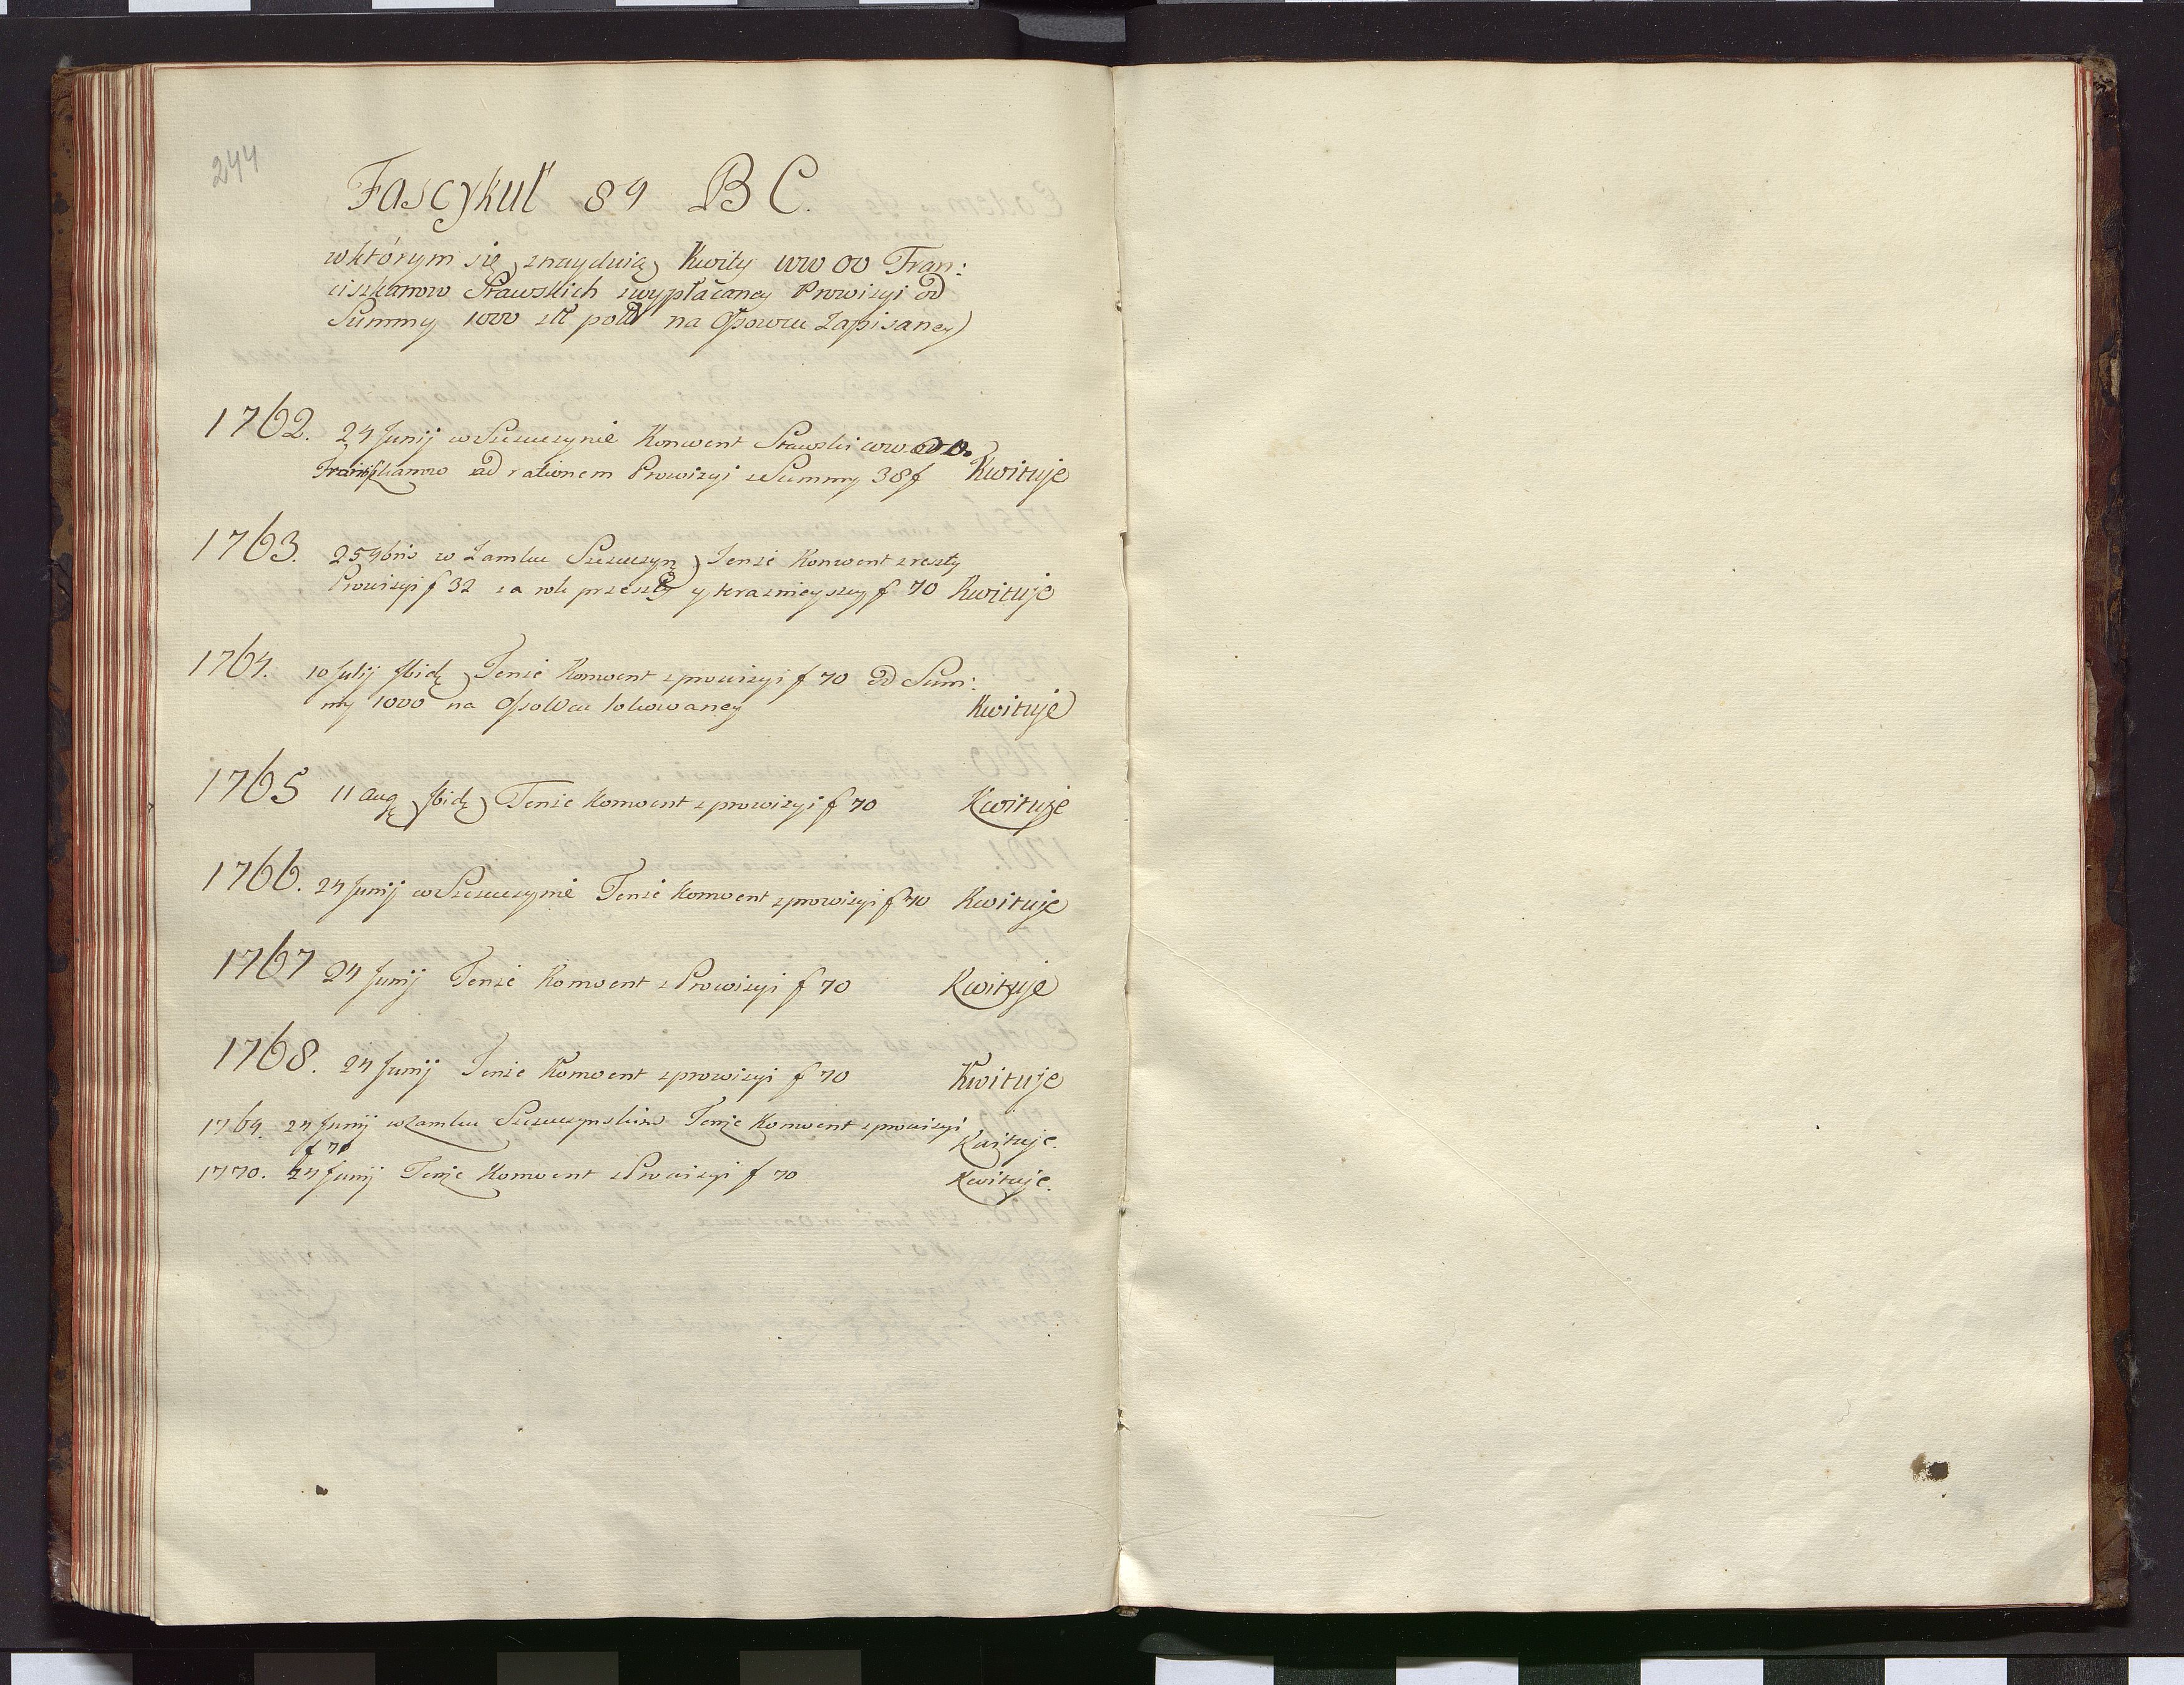 244
Fascykuł 89 B C.
wktórym się znayduią Kwity WW OO Fran:
ciszkanow Stawskich zwypłacaney Prowizyi od
Summy 1000 złł pold na Osowcu Zapisaney
1762. 24 Junij w Szczuczynie Konwent Stawski WW. OO.
Franciszkanow ad rationem Prowizyi z Summy 38 f Kwituje
1763. 25 9bris w Zamku Szczuczyn Tenże Konwent zreszty
Prowizyi f 32 za rok przeszły y teraznieyszy f 70 Kwituje
1764. 10 Julij Ibid Tenże Konwent zprowizyi f 70 od Sum:
my 1000 na Osowcu lokowaney Kwituje
1765 11 Aug Ibid Tenże Konwent zprowizyi f 70 Kwituje
1766. 24 Junij w Szczuczynie Tenże Konwent zprowizyi f 70 Kwituje
1767 24 Junij Tenże Konwent z Prowizyi f 70 Kwituje
1768. 24 Junij Tenże Konwent zprowizyi f 70 Kwituje
1769. 24 Junij w Zamku Szczuczynskim Tenże Konwent zprowizyi
f 70 Kwituje.
1770. 24 Junij Tenże Konwent z Prowizyi f 70 Kwituje.